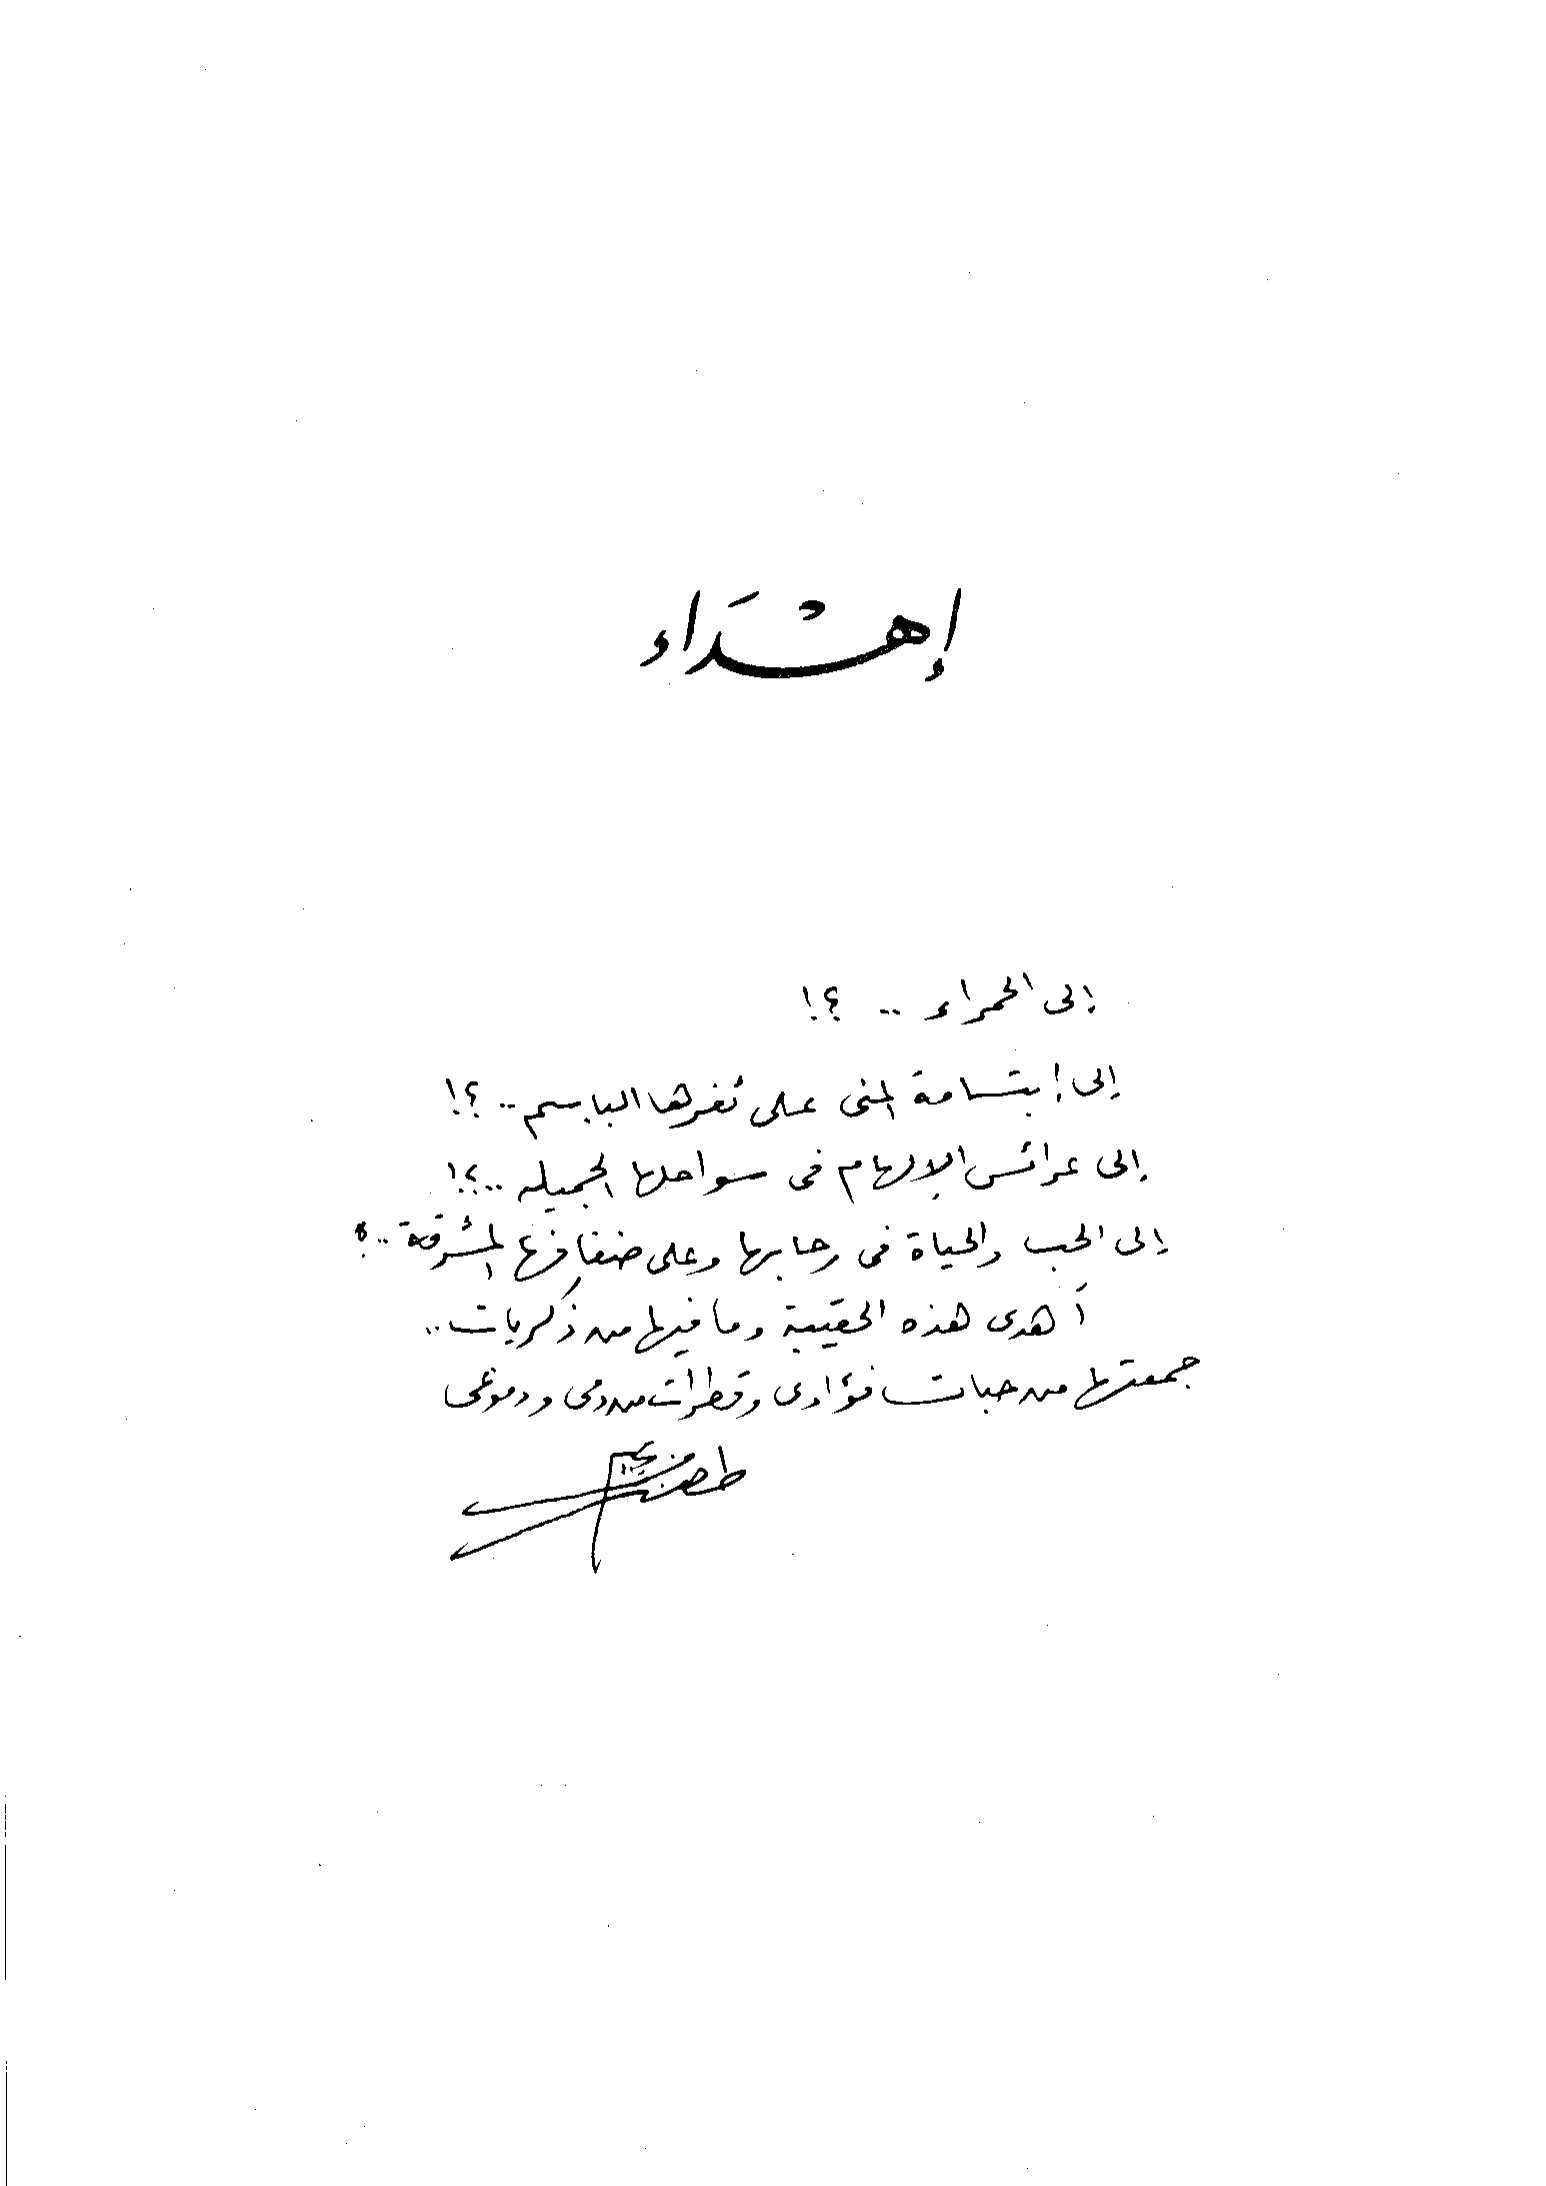 إهْدَاء
إلى الحمراء .. ؟!
إلى إبتسامة المنى على ثغرها الباسم .. ؟!
إلى عرائس الإلهام فى سواحلها الجميله .. ؟!
إلى الحب والحياة فى رحابها وعلى ضفافها المشرقة .. ؟
أهدى هذه الحقيبة وما فيها من ذكريات ..
جمعتها من حبات فؤادى وقطرات من دمى ودموعى